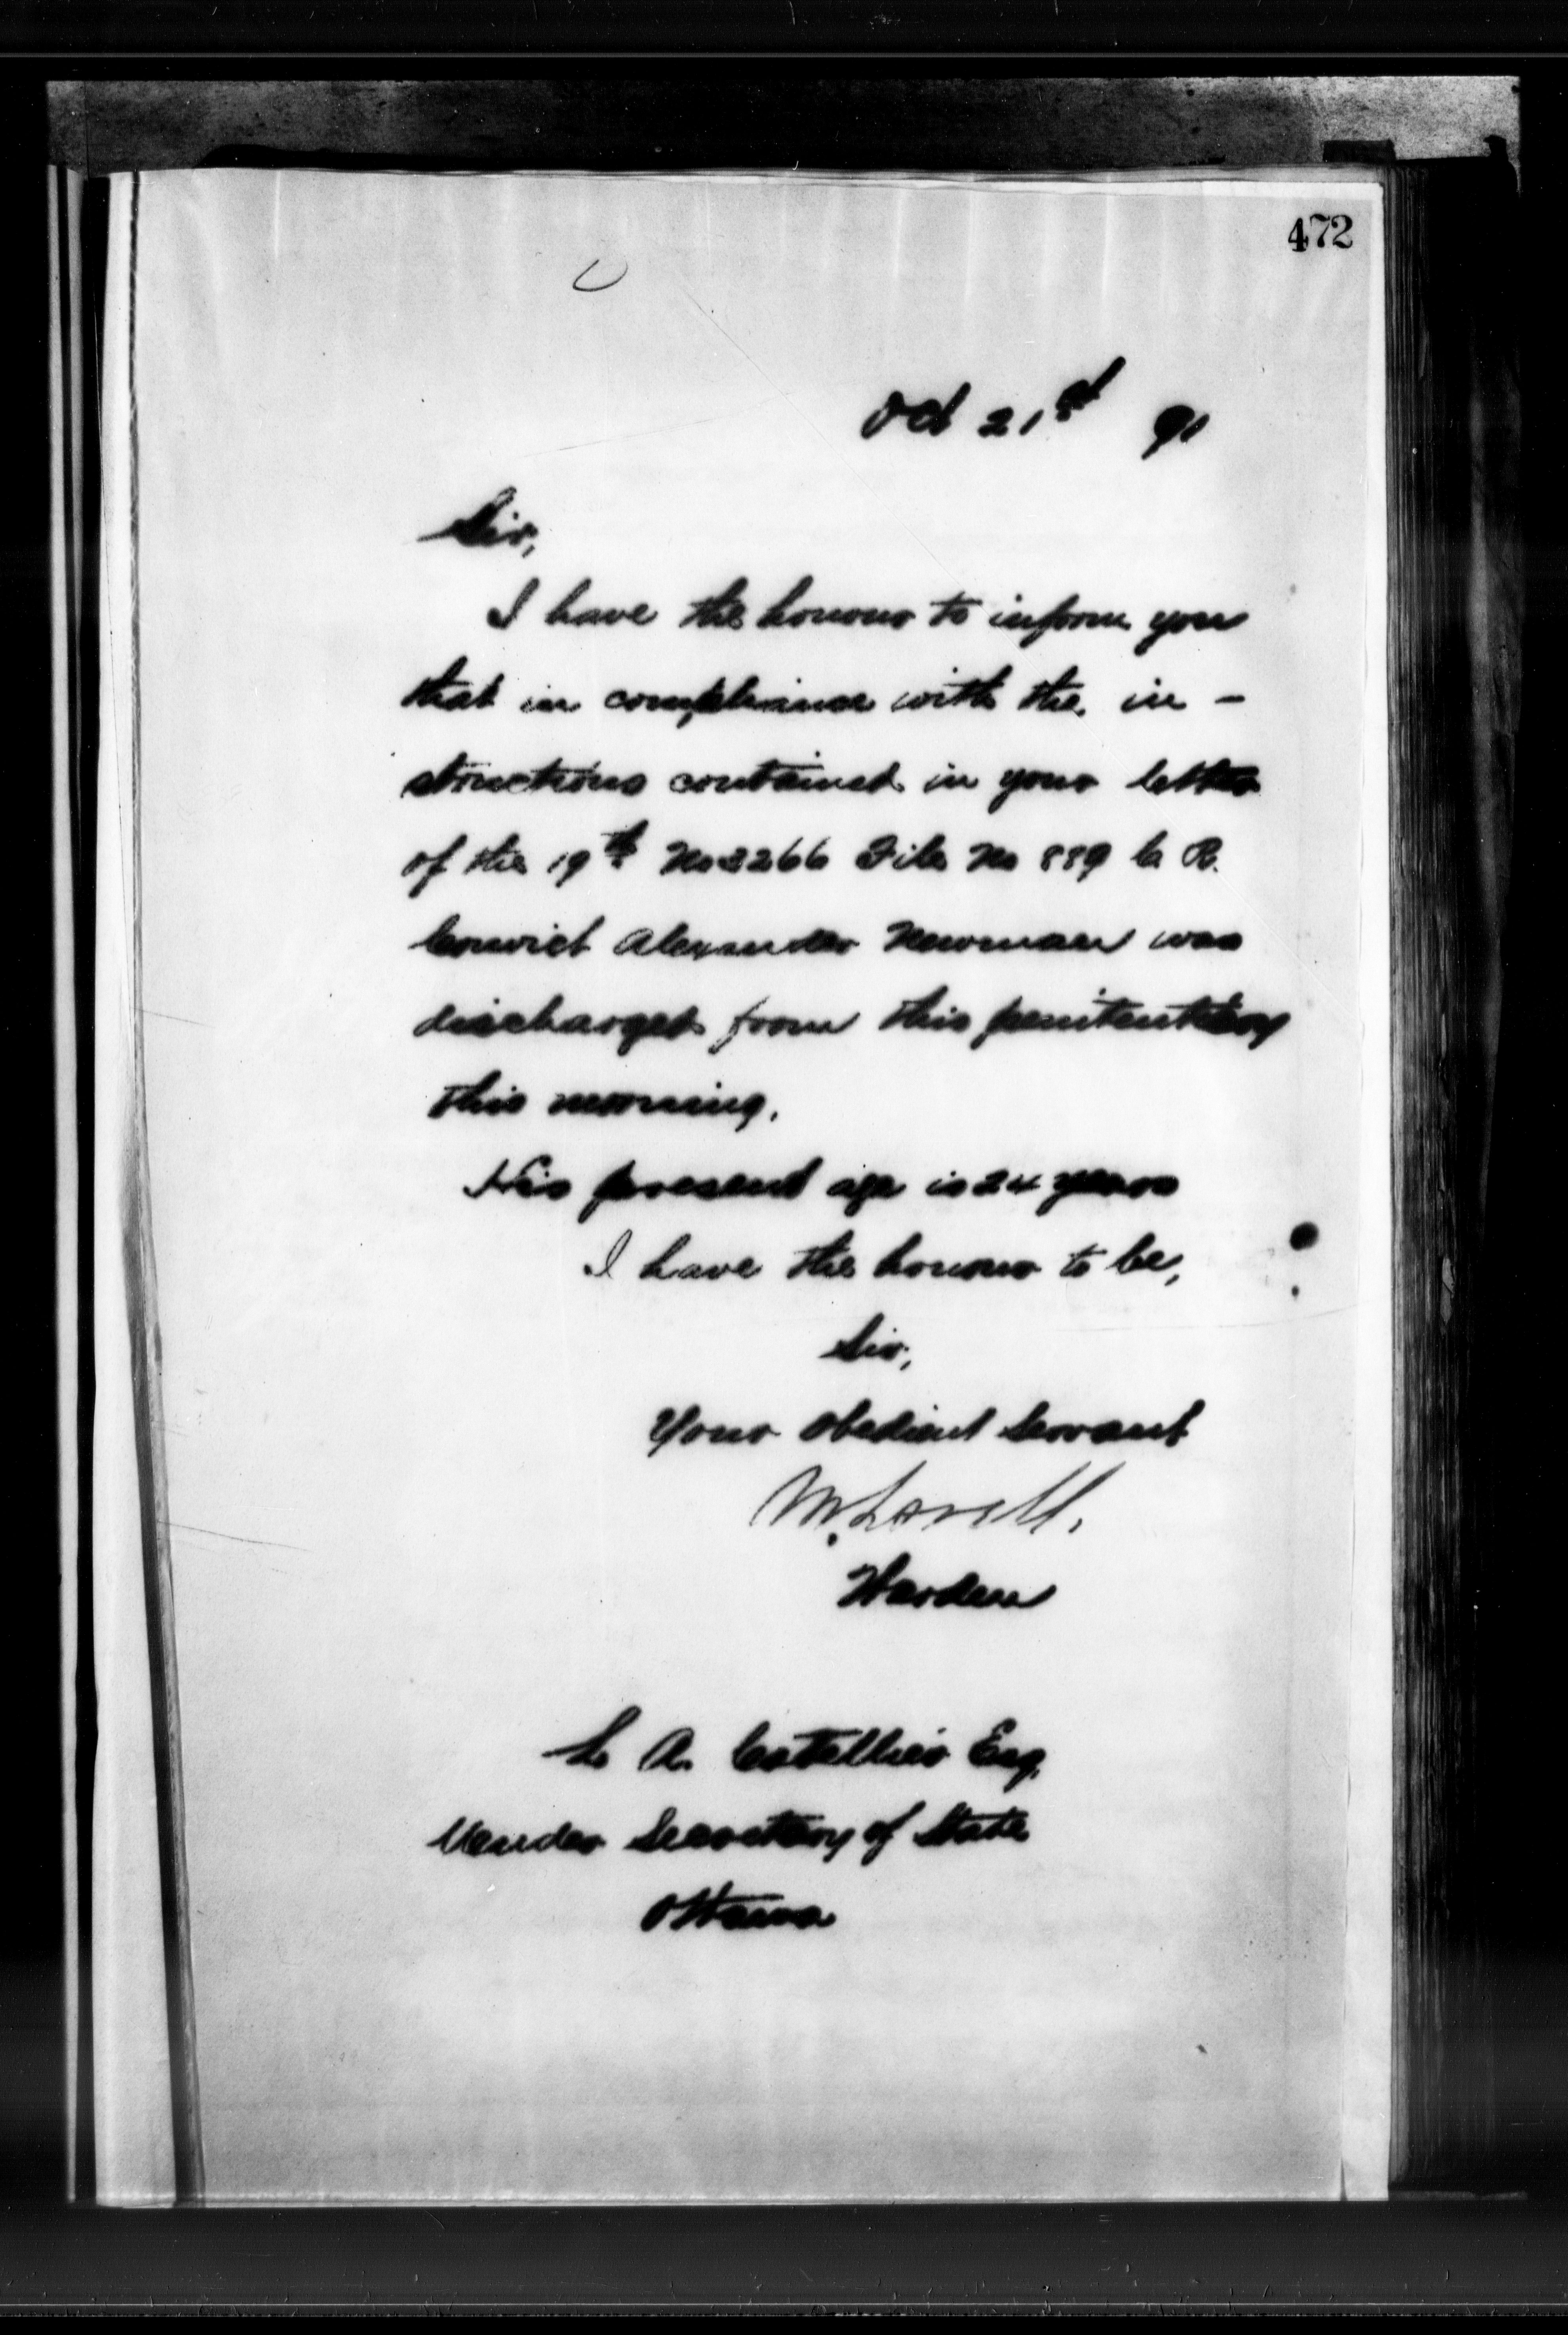 472
Oct 21st 91
Sir,
I have the honour to inform you
that in compliance with the in -
structions contained in your letter
of the 19th No 2266 File No 889 C. R.
Convict Alexander Newman was
discharged from this penitentiary
this morning.
His present age is 24 years
I have the honour to be,
Sir,
Your Obedient Servant
M. Lavell.
Warden
L A. Catellier Esq.
Under Secretary of State
Ottawa